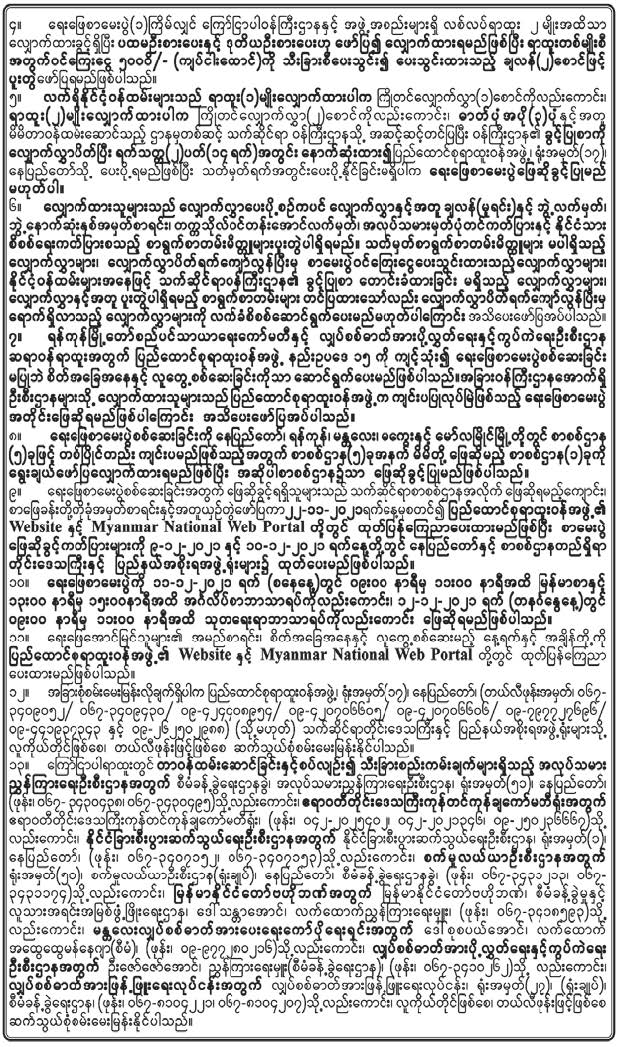 ၄။ ရေးဖြေစာမေးပွဲ(၁)ကြိမ်လျှင် ကြော်ငြာပါဝန်ကြီးဌာနနှင့် အဖွဲ့အစည်းများရှိ လစ်လပ်ရာထူး ၂ မျိုးအထိသာ
လျှောက်ထားခွင့်ရှိပြီး ပထမဦးစားပေးနှင့် ဒုတိယဦးစားပေးဟု ဖော်ပြ၍ လျှောက်ထားရမည်ဖြစ်ပြီး ရာထူးတစ်မျိုးစီ
အတွက်ဝင်ကြေးငွေ ၅၀၀၀ိ/- (ကျပ်ငါးထောင်)ကို သီးခြားစီပေးသွင်း၍ ပေးသွင်းထားသည့် ချလန်(၂)စောင်ဖြင့်
ပူးတွဲဖော်ပြရမည်ဖြစ်ပါသည်။
၅။ လက်ရှိနိုင်ငံ့ဝန်ထမ်းများသည် ရာထူး(၁)မျိုးလျှောက်ထားပါက ကြိုတင်လျှောက်လွှာ(၁)စောင်ကိုလည်းကောင်း၊
ရာထူး(၂)မျိုးလျှောက်ထားပါက ကြိုတင်လျှောက်လွှာ(၂)စောင်ကိုလည်းကောင်း၊ ဓာတ်ပုံအပို(၃)ပုံနှင့်အတူ
မိမိတာဝန်ထမ်းဆောင်သည့် ဌာနမှတစ်ဆင့် သက်ဆိုင်ရာ ဝန်ကြီးဌာနသို့ အဆင့်ဆင့်တင်ပြပြီး ဝန်ကြီးဌာန၏ ခွင့်ပြုစာကို
လျှောက်လွှာပိတ်ပြီး ရက်သတ္တ(၂)ပတ်(၁၄ ရက်)အတွင်း နောက်ဆုံးထား၍ပြည်ထောင်စုရာထူးဝန်အဖွဲ့၊ ရုံးအမှတ်(၁၇)၊
နေပြည်တော်သို့ ပေးပို့ရမည်ဖြစ်ပြီး သတ်မှတ်ရက်အတွင်းပေးပို့နိုင်ခြင်းမရှိပါက ရေးဖြေစာမေးပွဲဖြေဆိုခွင့်ပြုမည်
မဟုတ်ပါ။
၆။ လျှောက်ထားသူများသည် လျှောက်လွှာပေးပို့စဉ်ကပင် လျှောက်လွှာနှင့်အတူ ချလန်(မူရင်း)နှင့် ဘွဲ့လက်မှတ်၊
ဘွဲ့နောက်ဆုံးနှစ်အမှတ်စာရင်း၊ တက္ကသိုလ်ဝင်တန်းအောင်လက်မှတ်၊ အလုပ်သမားမှတ်ပုံတင်ကတ်ပြားနှင့် နိုင်ငံသား
စိစစ်ရေးကတ်ပြားစသည့် စာရွက်စာတမ်းမိတ္တူများပူးတွဲပါရှိရမည်။ သတ်မှတ်စာရွက်စာတမ်းမိတ္တူများ မပါရှိသည့်
လျှောက်လွှာများ၊ လျှောက်လွှာပိတ်ရက်ကျော်လွန်ပြီးမှ စာမေးပွဲဝင်ကြေးငွေပေးသွင်းထားသည့်လျှောက်လွှာများ၊
နိုင်ငံ့ဝန်ထမ်းများအနေဖြင့် သက်ဆိုင်ရာဝန်ကြီးဌာန၏ ခွင့်ပြုစာ တောင်းခံထားခြင်း မရှိသည့် လျှောက်လွှာများ၊
လျှောက်လွှာနှင့်အတူ ပူးတွဲပါရှိရမည့် စာရွက်စာတမ်းများ တင်ပြထားသော်လည်း လျှောက်လွှာပိတ်ရက်ကျော်လွန်ပြီးမှ
ရောက်ရှိလာသည့် လျှောက်လွှာများကို လက်ခံစိစစ်ဆောင်ရွက်ပေးမည်မဟုတ်ပါကြောင်း အသိပေးဖော်ပြအပ်ပါသည်။
၇။ ရန်ကုန်မြို့တော်စည်ပင်သာယာရေးကော်မတီနှင့် လျှပ်စစ်ဓာတ်အားပို့လွှတ်ရေးနှင့်ကွပ်ကဲရေးဦးစီးဌာန
ဆရာဝန်ရာထူးအတွက် ပြည်ထောင်စုရာထူးဝန်အဖွဲ့ နည်းဥပဒေ ၁၅ ကို ကျင့်သုံး၍ ရေးဖြေစာမေးပွဲစစ်ဆေးခြင်း
မပြုဘဲ စိတ်အခြေအနေနှင့် လူတွေ့စစ်ဆေးခြင်းကိုသာ ဆောင်ရွက်ပေးမည်ဖြစ်ပါသည်။အခြားဝန်ကြီးဌာနအောက်ရှိ
ဦးစီးဌာနများသို့ လျှောက်ထားသူများသည် ပြည်ထောင်စုရာထူးဝန်အဖွဲ့က ကျင်းပပြုလုပ်မြဲဖြစ်သည့် ရေးဖြေစာမေးပွဲ
အတိုင်းဖြေဆိုရမည်ဖြစ်ပါကြောင်း အသိပေးဖော်ပြအပ်ပါသည်။
၈။ ရေးဖြေစာမေးပွဲစစ်ဆေးခြင်းကို နေပြည်တော်၊ ရန်ကုန်၊ မန္တလေး၊ မကွေးနှင့် မော်လမြိုင်မြို့တို့တွင် စာစစ်ဌာန
(၅)ခုဖြင့် တစ်ပြိုင်တည်း ကျင်းပမည်ဖြစ်သည့်အတွက် စာစစ်ဌာန(၅)ခုအနက် မိမိတို့ ဖြေဆိုမည့် စာစစ်ဌာန(၁)ခုကို
ရွေးချယ်ဖော်ပြလျှောက်ထားရမည်ဖြစ်ပြီး အဆိုပါစာစစ်ဌာန၌သာ ဖြေဆိုခွင့်ပြုမည်ဖြစ်ပါသည်။
၉။ ရေးဖြေစာမေးပွဲစစ်ဆေးခြင်းအတွက် ဖြေဆိုခွင့်ရရှိသူများသည် သက်ဆိုင်ရာစာစစ်ဌာနအလိုက် ဖြေဆိုရမည့်ကျောင်း၊
စာဖြေခန်းတို့တိုခုံအမှတ်စာရင်းနှင့်အတူယှဉ်တွဲဖော်ပြကာ၂၂-၁၁-၂၀၂၁ရက်နေ့မှစတင်၍ ပြည်ထောင်စုရာထူးဝန်အဖွဲ့၏
Website နှင့် Myanmar National Web Portal တို့တွင် ထုတ်ပြန်ကြေညာပေးထားမည်ဖြစ်ပြီး စာမေးပွဲ
ဖြေဆိုခွင့်ကတ်ပြားများကို ၉-၁၂-၂၀၂၁ နှင့် ၁၀-၁၂-၂၀၂၁ ရက်နေ့တို့တွင် နေပြည်တော်နှင့် စာစစ်ဌာနတည်ရှိရာ
တိုင်းဒေသကြီးနှင့် ပြည်နယ်အစိုးရအဖွဲ့ရုံးများ၌ ထုတ်ပေးမည်ဖြစ်ပါသည်။
၁၀။ ရေးဖြေစာမေးပွဲကို ၁၁-၁၂-၂၀၂၁ ရက် (စနေနေ့)တွင် ၀၉း၀၀ နာရီမှ ၁၁း၀၀ နာရီအထိ မြန်မာစာနှင့်
၁၃း၀၀ နာရီမှ ၁၅း၀၀နာရီအထိ အင်္ဂလိပ်စာဘာသာရပ်ကိုလည်းကောင်း၊ ၁၂-၁၂-၂၀၂၁ ရက် (တနင်္ဂနွေနေ့)တွင်
၀၉း၀၀ နာရီမှ ၁၁း၀၀ နာရီအထိ သုတရေးရာဘာသာရပ်ကိုလည်းကောင်း ဖြေဆိုရမည်ဖြစ်ပါသည်။
၁၁။ ရေးဖြေအောင်မြင်သူများ၏ အမည်စာရင်း၊ စိတ်အခြေအနေနှင့် လူတွေ့စစ်ဆေးမည့် နေ့ရက်နှင့် အချိန်တို့ကို
ပြည်ထောင်စုရာထူးဝန်အဖွဲ့၏ Website နှင့် Myanmar National Web Portal တို့တွင် ထုတ်ပြန်ကြေညာ
ပေးထားမည်ဖြစ်ပါသည်။
၁၂။ အခြားစုံစမ်းမေးမြန်းလိုချက်ရှိပါက ပြည်ထောင်စုရာထူးဝန်အဖွဲ့၊ ရုံးအမှတ်(၁၇)၊ နေပြည်တော်၊ (တယ်လီဖုန်းအမှတ်၊ ၀၆၇-
၃၄၀၉၀၅၂/ ၀၆၇-၃၄၀၉၄၃၀/ ၀၉-၄၂၄၄၀၈၉၅၄/ ၀၉-၄၂၀၇၀၆၆၀၅/ ၀၉-၄၂၀၇၀၆၆၀၆/ ၀၉-၇၉၇၇၂၇၆၉၆/
၀၉-၄၄၁၉၃၇၃၄၃ နှင့် ၀၉-၂၆၂၅၀၂၂၈၈) (သို့မဟုတ်) သက်ဆိုင်ရာတိုင်းဒေသကြီးနှင့် ပြည်နယ်အစိုးရအဖွဲ့ရုံးများသို့
လူကိုယ်တိုင်ဖြစ်စေ၊ တယ်လီဖုန်းဖြင့်ဖြစ်စေ ဆက်သွယ်စုံစမ်းမေးမြန်းနိုင်ပါသည်။
၁၃။ ကြော်ငြာပါရာထူးတွင် တာဝန်ထမ်းဆောင်ခြင်းနှင့်စပ်လျဉ်း၍ သီးခြားစည်းကမ်းချက်များရှိသည့် အလုပ်သမား
ညွှန်ကြားရေးဦးစီးဌာနအတွက် စီမံခန့်ခွဲရေးဌာနခွဲ၊ အလုပ်သမားညွှန်ကြားရေးဦးစီးဌာန၊ ရုံးအမှတ်(၅၁)၊ နေပြည်တော်
(ဖုန်း၊ ၀၆၇- ၃၄၃၀၄၃၈၊ ၀၆၇-၃၄၃၀၄၉၅)သို့လည်းကောင်း၊ ဧရာဝတီတိုင်းဒေသကြီးကုန်တင်ကုန်ချကော်မတီရုံးအတွက်
ဧရာဝတီတိုင်းဒေသကြီးကုန်တင်ကုန်ချကော်မတီရုံး၊ (ဖုန်း၊ ၀၄၂-၂၀၂၅၄၀၂၊ ၀၄၂-၂၀၂၁၃၄၆၊ ၀၉-၂၅၀၂၃၆၆၆၇)သို့
လည်းကောင်း၊ နိုင်ငံခြားစီးပွားဆက်သွယ်ရေးဦးစီးဌာနအတွက် နိုင်ငံခြားစီးပွားဆက်သွယ်ရေးဦးစီးဌာန၊ ရုံးအမှတ်(၁)၊
နေပြည်တော်၊ (ဖုန်း၊ ၀၆၇-၃၄၀၇၁၅၂၊ ၀၆၇-၃၄၀၇၁၅၃)သို့လည်းကောင်း၊ စက်မှုလယ်ယာဦးစီးဌာနအတွက်
ရုံးအမှတ်(၅၀)၊ စက်မှုလယ်ယာဦးစီးဌာန(ရုံးချုပ်)၊ နေပြည်တော်၊ စီမံခန့်ခွဲရေးဌာနခွဲ၊ (ဖုန်း၊ ၀၆၇-၃၄၃၁၂၁၃၊ ၀၆၇-
၃၄၃၁၁၇၄)သို့လည်းကောင်း၊ မြန်မာ့နိုင်ငံတော်ဗဟိုဘဏ်အတွက် မြန်မာနိုင်ငံတော်ဗဟိုဘဏ်၊ စီမံခန့်ခွဲမှုနှင့်
လူသားအရင်းအမြစ်ဖွံ့ဖြိုးရေးဌာန၊ ဒေါ်သန္တာအောင်၊ လက်ထောက်ညွှန်ကြားရေးမှူး၊ (ဖုန်း၊ ၀၆၇-၃၄၁၈၅၉၃)သို့
လည်းကောင်း၊ မန္တလေးလျှပ်စစ်ဓာတ်အားပေးရေးကော်ပိုရေးရှင်းအတွက် ဒေါ်စုစပယ်အောင်၊ လက်ထောက်
အထွေထွေမန်နေဂျာ(စီမံ)၊ (ဖုန်း၊ ၀၉-၉၇၇၂၈၀၂၁၆)သို့လည်းကောင်း၊ လျှပ်စစ်ဓာတ်အားပို့လွှတ်ရေးနှင့်ကွပ်ကဲရေး
ဦးစီးဌာနအတွက် ဦးဇော်ဇော်အောင်၊ ညွှန်ကြားရေးမှူး(စီမံခန့်ခွဲရေးဌာန)၊ (ဖုန်း၊ ၀၆၇-၃၄၁၀၂၆၂)သို့ လည်းကောင်း၊
လျှပ်စစ်ဓာတ်အားဖြန့်ဖြူးရေးလုပ်ငန်းအတွက် လျှပ်စစ်ဓာတ်အားဖြန့်ဖြူးရေးလုပ်ငန်း၊ ရုံးအမှတ်(၂၇)၊ (ရုံးချုပ်)၊
စီမံခန့်ခွဲရေးဌာန၊ (ဖုန်း၊ ၀၆၇-၈၁၀၄၂၂၁၊ ၀၆၇-၈၁၀၄၂၀၇)သို့လည်းကောင်း၊ လူကိုယ်တိုင်ဖြစ်စေ၊ တယ်လီဖုန်းဖြင့်ဖြစ်စေ
ဆက်သွယ်စုံစမ်းမေးမြန်းနိုင်ပါသည်။